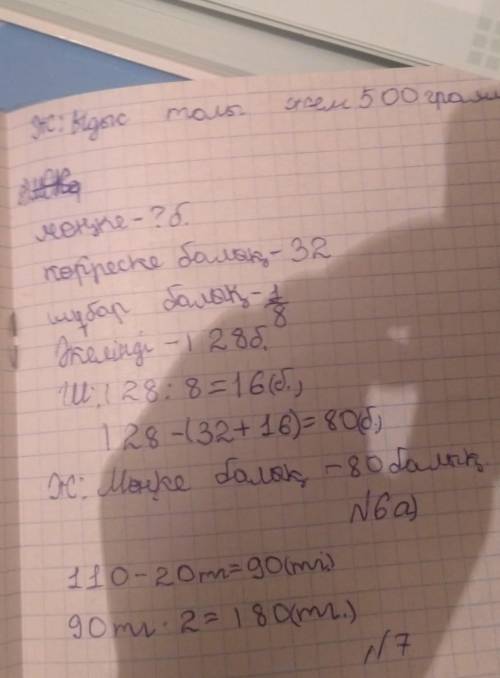 Ж: Ыдыс толы жем 500 грамм
мөңке - ? б.
көгереске балық - 32
шұбар балық - 1/8
Әкелінді - 128б.
Ш: 128 : 8 = 16 (б.)
128 - (32 + 16) = 80 (б.)
Ж: Мөңке балық - 80 балық.
№6 а)
110 - 20тг = 90 (тг.)
90тг · 2 = 180 (тг.)
№7